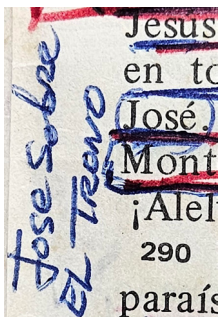 Jose sobre
EL TRONO
Jesús
en to
José.
Mont
¡Alel
290
paraís